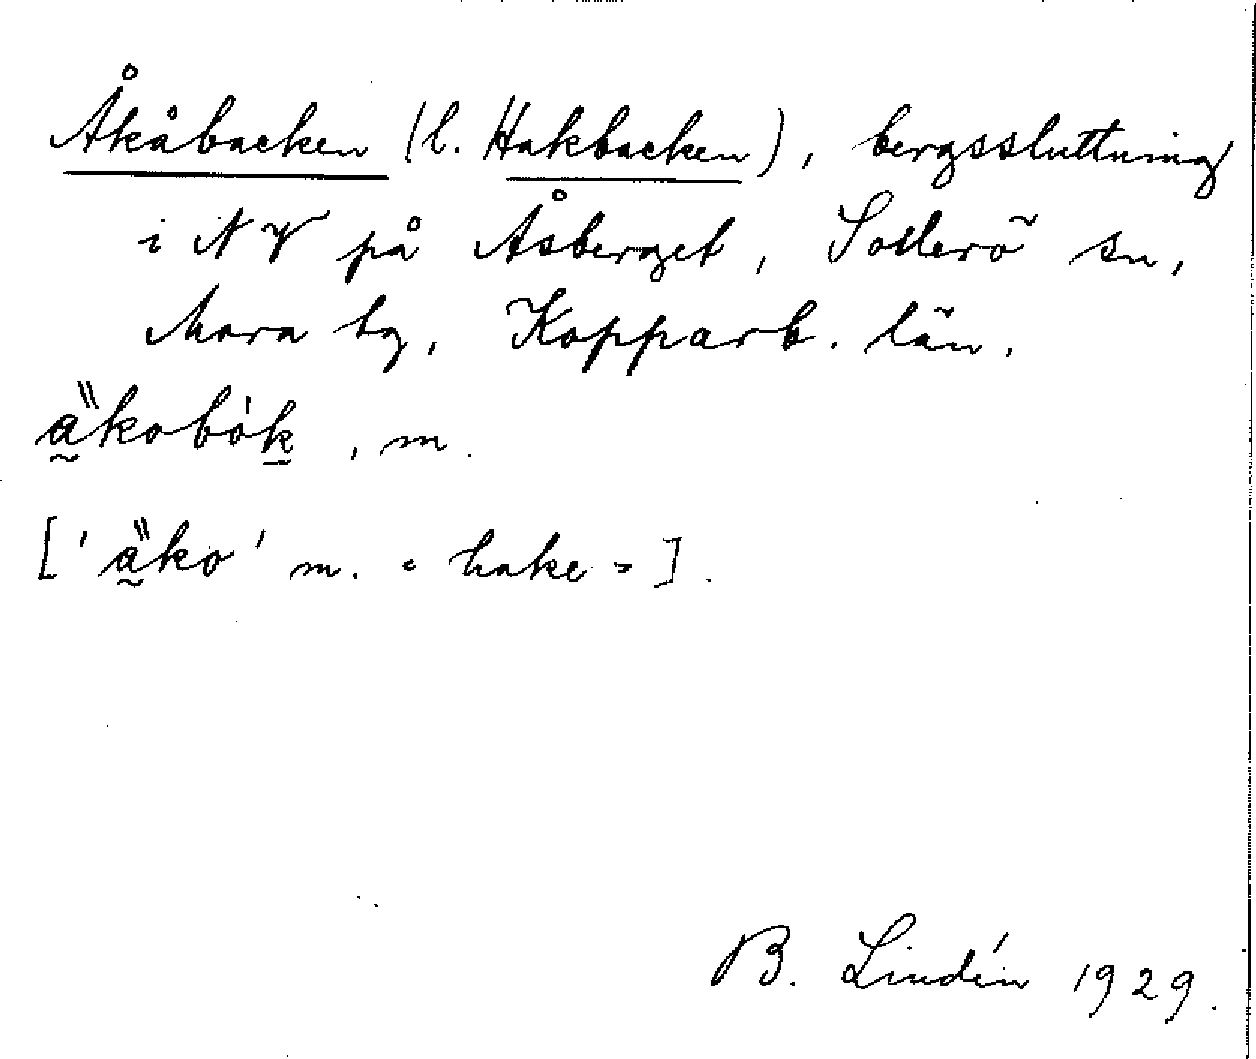 Åkåbacken (l. Hakbacken), bergssluttning
i NV på Åsberget, Sollerö sn,
Mora tg, Kopparb. län.
a̰̎kobók̲, m.
['a̰̎ko' m. = hake = ].
B. Lindén 1929.